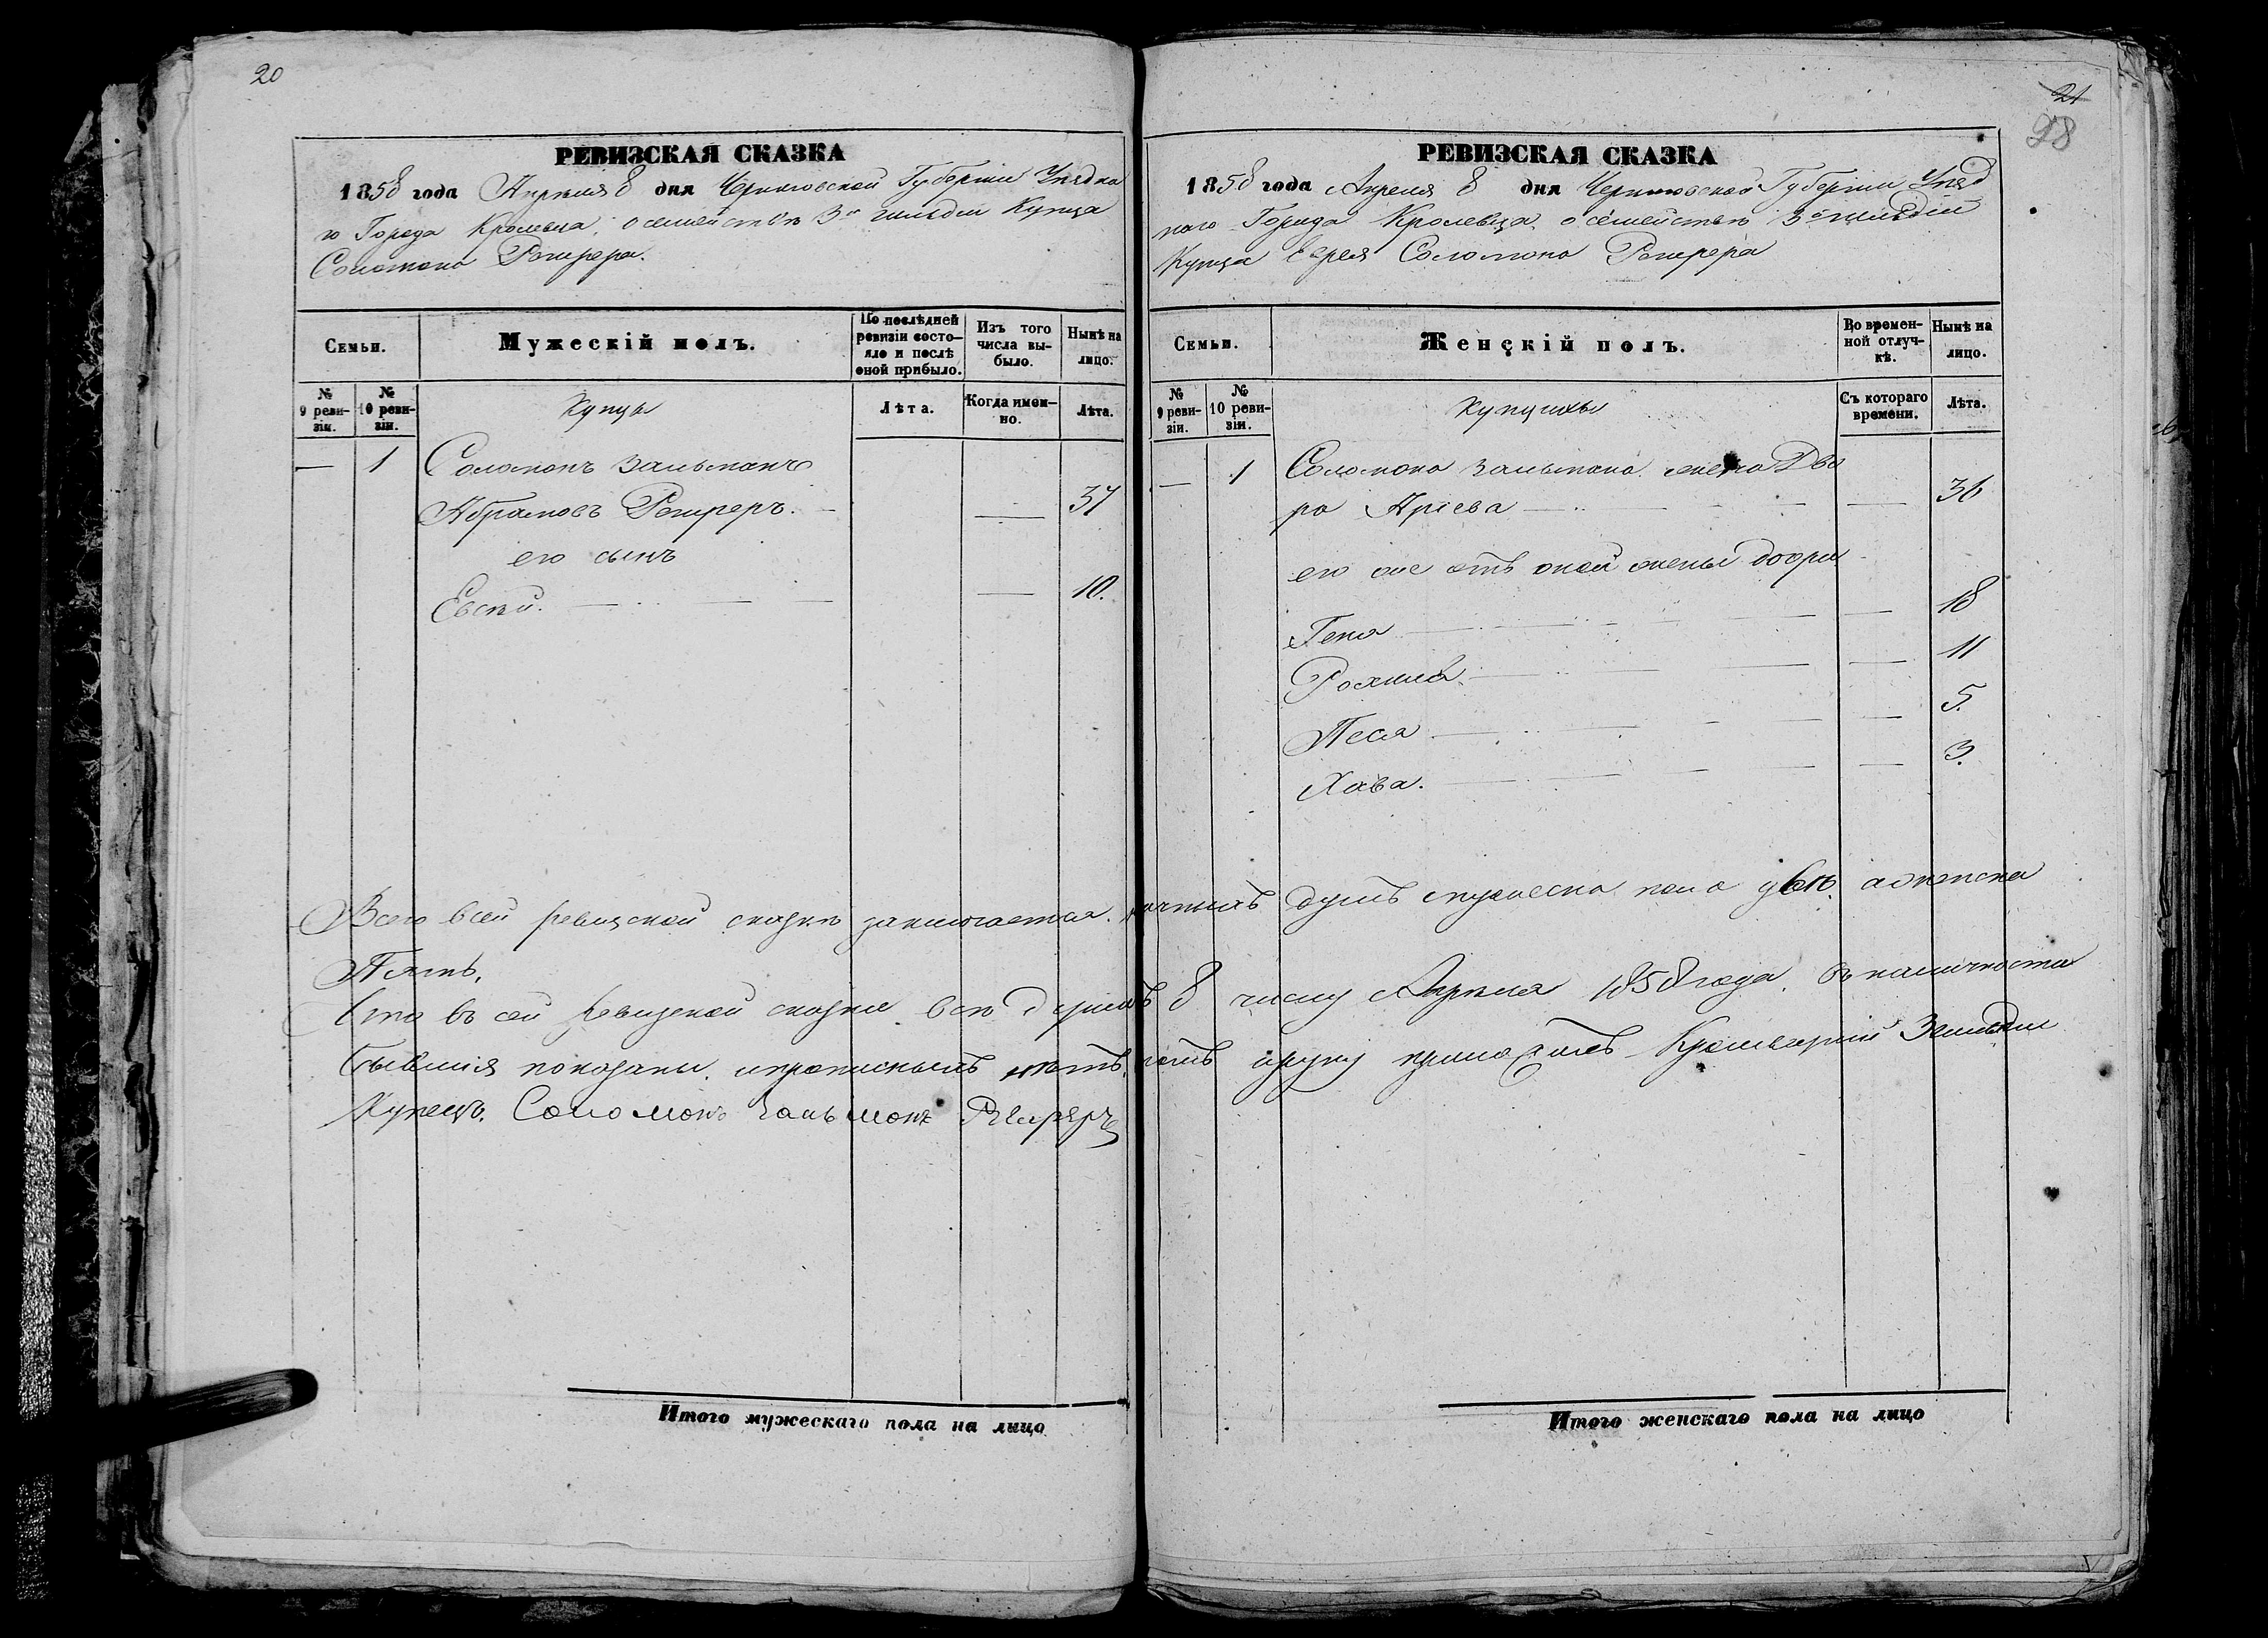 20
РЕВИЗСКАЯ СКАЗКА
1858 года Апреля 8 дня Черниговской Губернии Уѣздна
го Города Кролевца, о семействѣ 3й гильдіи Купца
Соломона
Семьи.
Мужескій полъ.
По послѣдней ревизіи состояло и послѣ оной прибыло.
Изъ того числа выбыло.
Нынѣ на лицо.
№ 9 ревизіи.
№ 10 ревизіи.
Купцы
Лѣта.
Когда именно.
Лѣта.
— 1 Соломонъ Зальманъ
Абрамовъ — 37
его сынъ
Евсѣй. — 10.
Всего въ сей ревизской сказкѣ заключается. душъ мужеска пола двѣ. а женска
Пять.
Что въ сей ревизской сказке всѣ 8 числу Апреля 1858 года. въ наличности
бывшія показаны. и прописныхъ нѣтъ. руку приложилъ Кролевецкій 3 гильдіи
Купецъ. Соломонъ Зальмонъ
Итого мужескаго пола на лицо
21
28
РЕВИЗСКАЯ СКАЗКА
1858 года Апреля 8 дня Черниговской Губернии Уѣзд
наго Города Кролевца, о семействѣ 3й гильдіи
Купца Еврея Соломона
Семьи.
Женскій полъ.
Во временной отлучкѣ.
Нынѣ на лицо.
№ 9 ревизіи.
№ 10 ревизіи.
Купчихы
Съ котораго времени.
Лѣта.
— 1 Соломона Зальмана жена Дво
ра Аріева — 36
его же отъ оной жены дочри
Геня — 18
Рохиля — 11
Песя — 5.
Хава. — 3.
Итого женскаго пола на лицо